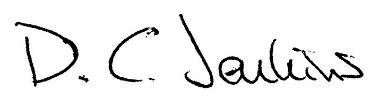 D. C. Jenkins